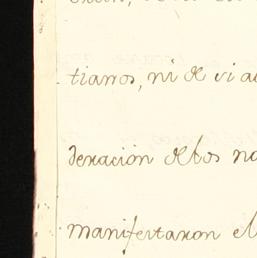 tianos, ni de vi a
deracion de los no
manifestaron el